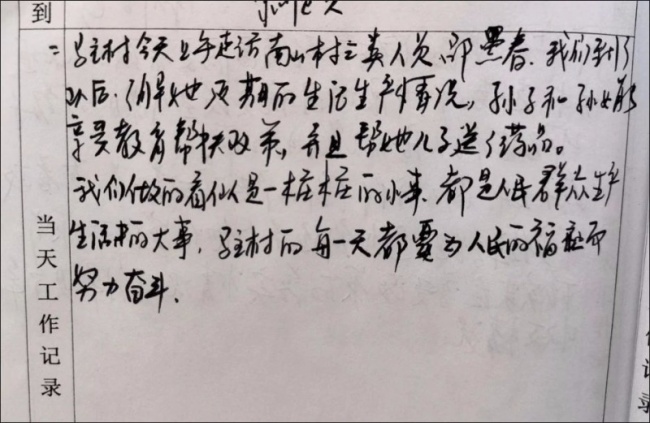 到
二 驻村今天上午走访南山村三类人员邵墨春.我们到了
以后.了解她近期的生活生产情况,孙子和孙女能
享受教育帮扶政策,并且帮她儿子送了药品。
我们做的看似是一桩桩的小事.都是人民群众生产
生活中的大事,驻村的每一天都要为人民的福祉而
努力奋斗.
当天工作记录
记录